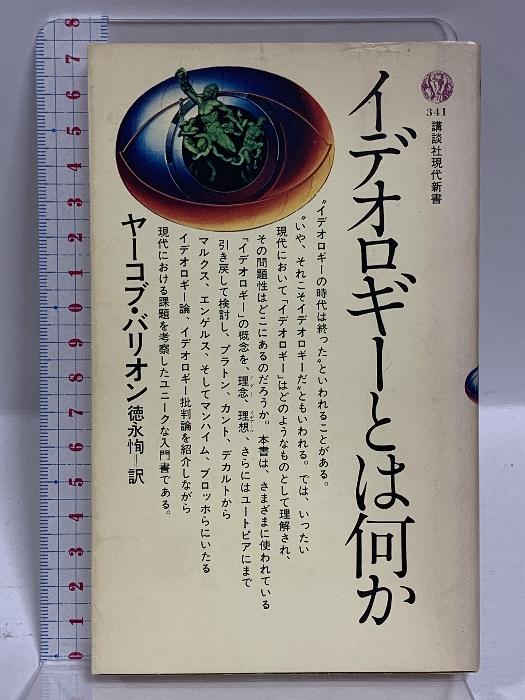 341
講談社現代新書
イデオロギーとは何か
“イデオロギーの時代は終った”といわれることがある。
“いや、それこそイデオロギーだ”ともいわれる。では、いったい
現代において「イデオロギー」はどのようなものとして理解され、
その問題性はどこにあるのだろうか。本書は、さまざまに使われている
「イデオロギー」の概念を、理念、理想、さらにはユートピアにまで
引き戻して検討し、プラトン、カント、デカルトから
マルクス、エンゲルス、そしてマンハイム、ブロッホらにいたる
イデオロギー論、イデオロギー批判論を紹介しながら
現代における課題を考察したユニークな入門書である。
ヤーコブ・バリオン
徳永恂＝訳
8
7
6
5
4
3
2
1
0
9
8
7
6
5
4
3
2
1
0